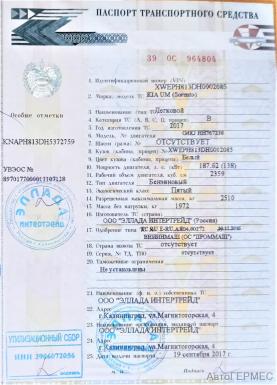 ПАСПОРТ ТРАНСПОРТНОГО СРЕДСТВА
39 ОС 964804
Особые отметки
1. Идентификационный номер (VIN) XWEPH813DH0002085
2. Марка, модель ТС KIA UM (Sorento)
3. Наименование (тип ТС) Легковой
4. Категория ТС (А, В, С, D, прицеп) В
5. Год изготовления ТС 2017
6. Модель, № двигателя G4KJ
7. Шасси (рама) № ОТСУТСТВУЕТ
8. Кузов (кабина, прицеп) № XWEPH813DH0002085
9. Цвет кузова (кабины, прицепа) Белый
10. Мощность двигателя, л. с. (кВт) 187.62 (138)
11. Рабочий объем двигателя, куб. см 2359
12. Тип двигателя Бензиновый
13. Экологический класс Пятый
14. Разрешенная максимальная масса, кг 2510
15. Масса без нагрузки, кг 1972
16. Изготовитель ТС (страна)
ООО "ЭЛЛАДА ИНТЕРТРЕЙД" (Россия)
17. Одобрение типа ТС №
18. Страна вывоза ТС отсутствует
19. Серия, № ТД, ТПО отсутствует
20. Таможенные ограничения
Не установлены
KNAPH813DH5372759
УВЭОС №
ЭЛЛАДА
ИНТЕРТРЕЙД
УТИЛИЗАЦИОННЫЙ СБОР
ИНН 3906072056
ООО "ЭЛЛАДА ИНТЕРТРЕЙД"
22. Адрес
г.Калининград, ул.Магнитогорская, 4
ООО "ЭЛЛАДА ИНТЕРТРЕЙД"
24. Адрес
г.Калининград, ул.Магнитогорская, 4
25. Дата выдачи паспорта 19 сентября 2017
М.П. Подпись
АвтоГЕРМЕС